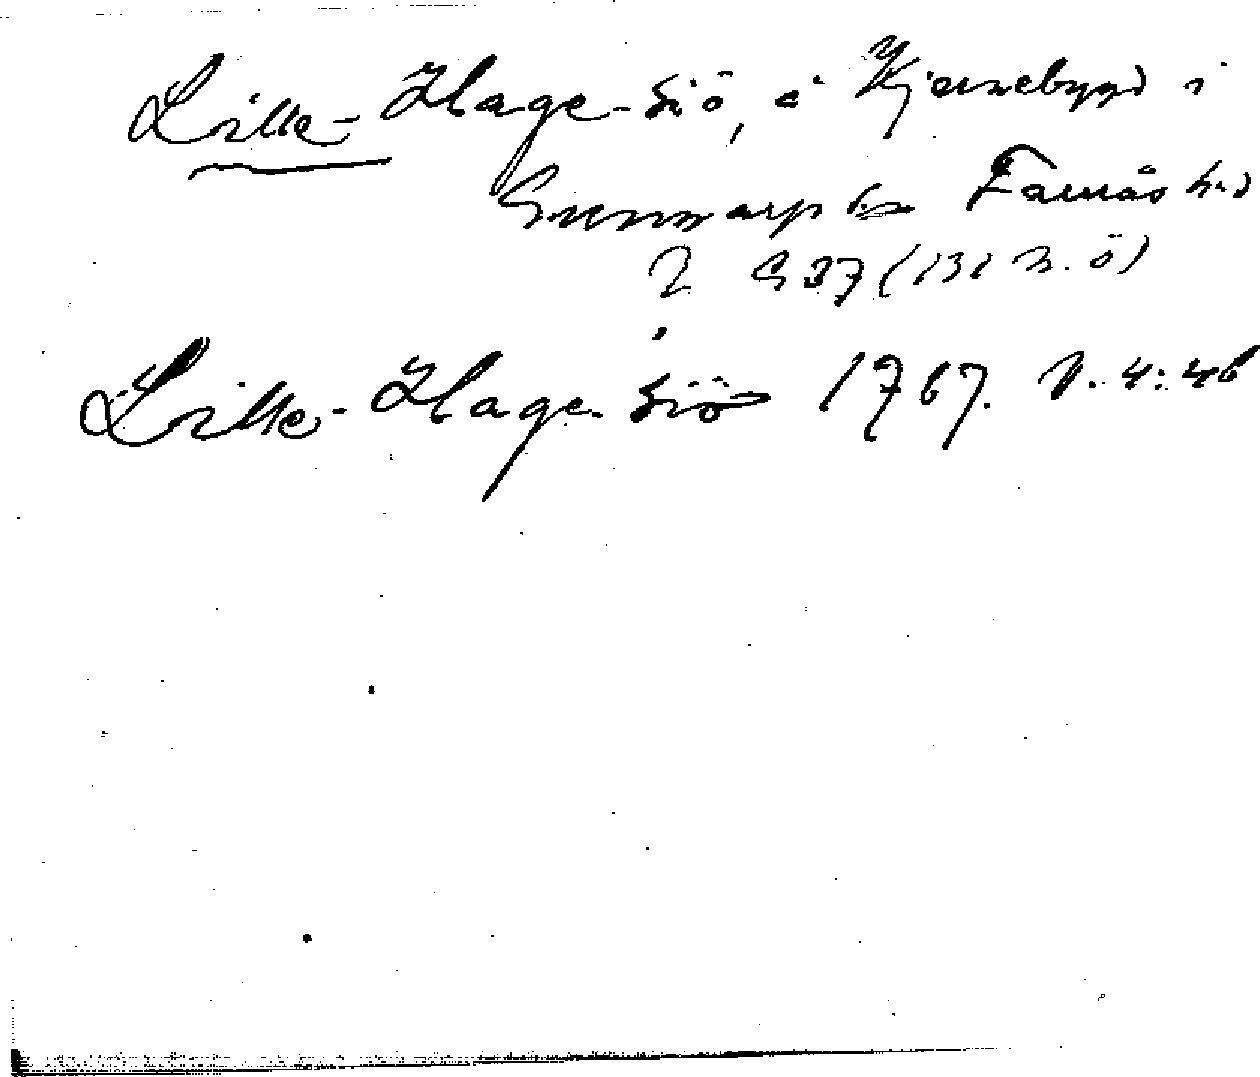 Lille-Hage-Siö, å Kjernebygd i
Gunnarp sn Faurås hd
S 37 (131 n. ö)
Lille-Hage-Siö 1767. V. 4:46